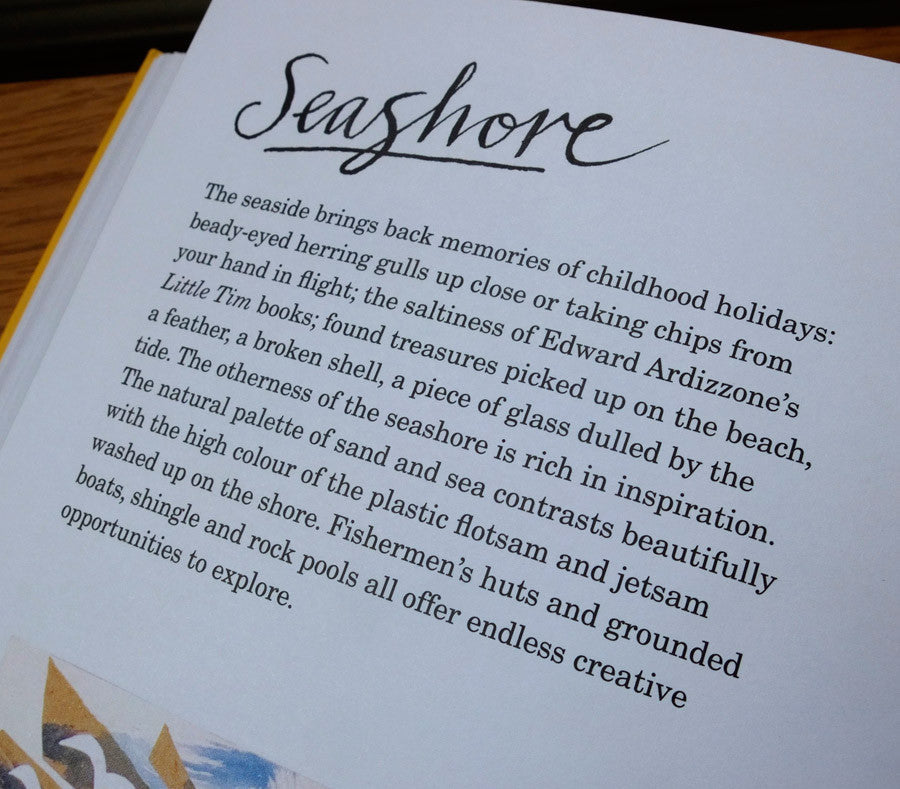 Seashore
The seaside brings back memories of childhood holidays:
beady-eyed herring gulls up close or taking chips from
your hand in flight; the saltiness of Edward Ardizzone’s
Little Tim books; found treasures picked up on the beach,
a feather, a broken shell, a piece of glass dulled by the
tide. The otherness of the seashore is rich in inspiration.
The natural palette of sand and sea contrasts beautifully
with the high colour of the plastic flotsam and jetsam
washed up on the shore. Fishermen’s huts and grounded
boats, shingle and rock pools all offer endless creative
opportunities to explore.